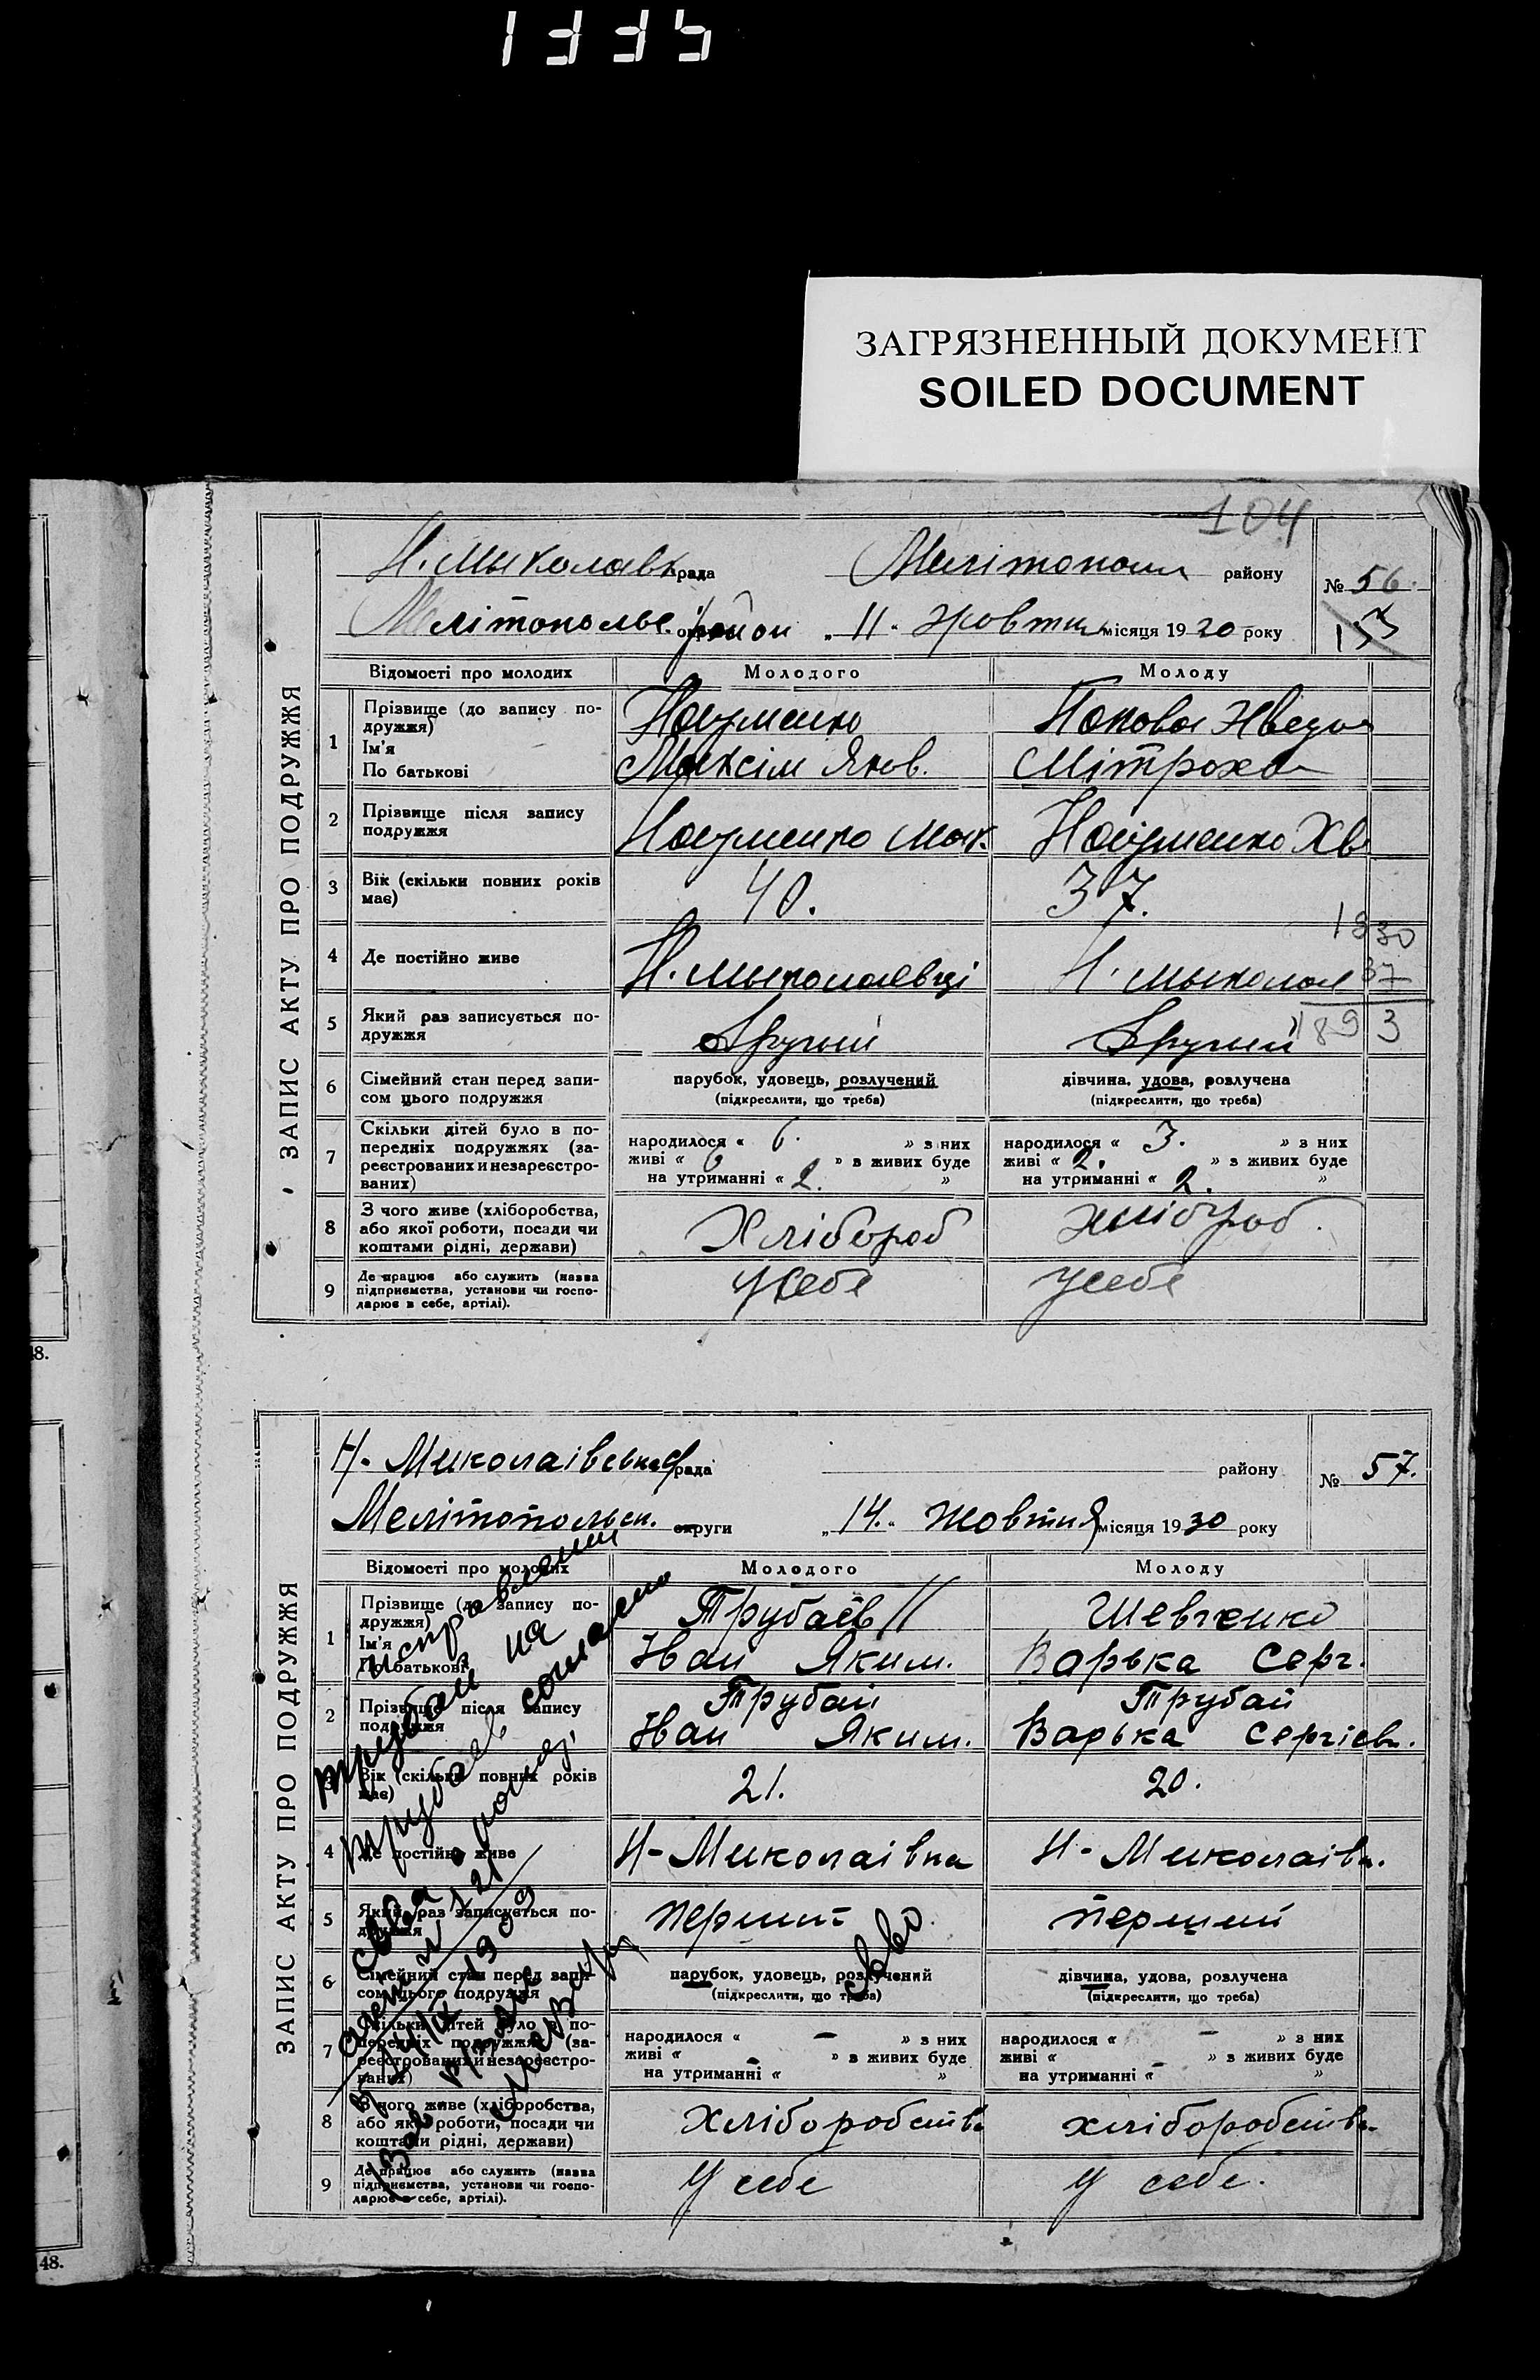 1335
ЗАГРЯЗНЕННЫЙ ДОКУМЕНТ
SOILED DOCUMENT
104
ЗАПИС АКТУ ПРО ПОДРУЖЖЯ
Н. Миколаевк рада Мелітопол району № 56.
Мелітопольс. район „11“ жовтня місяця 1930 року 153
Відомості про молодих Молодого Молоду
1 Прізвище (до запису по-
дружжя) Науменко Попова
Ім'я
По батькові Максім Яков. Мітрохв
2 Прізвище після запису
подружжя Науменко Мак. Науменко Хв
3 Вік (скільки повних років
має) 40. 37.
1930
4 Де постійно живе Н. Миколаевці Н. Миколаи 37
1893
5 Який раз записується по-
дружжя Другий Другий
6 Сімейний стан перед запи-
сом цього подружжя парубок, удовець, розлучений дівчина, удова, розлучена
(підкреслити, що треба) (підкреслити, що треба)
7 Скільки дітей було в по-
передніх подружжях (за-
реєстрованих и незареєстро-
ваних)
народилося « 6. » з них народилося « 3. » з них
живі « 6 » в живих буде живі « 2. » з живих буде
на утриманні « 2. » на утриманні « 2. »
8 З чого живе (хліборобства,
або якої роботи, посади чи
коштами рідні, держави) Хлібороб хлібороб.
9 Де працює або служить (назва
підприємства, установи чи госпо-
дарює в себе, артілі). У себе У себе
48.
ЗАПИС АКТУ ПРО ПОДРУЖЖЯ
Н. Миколаівська рада району № 57.
Мелітопольск. округи „14.“ Жовтня місяця 1930 року
Відомості про молодих Молодого Молоду
1 Прізвище (до запису по-
дружжя) Трубаєв Шевченко
Ім'я
По батькові Іван Яким. Варька Серг.
2 Прізвище після запису
подружжя Трубай Трубай
Іван Яким. Варька Сергіевн.
Вік (скільки повних років
має) 21. 20.
4 Де постійно живе Н-Миколаівка Н-Миколаівк.
5 Який раз записується по-
дружжя перший перший
6 Сімейний стан перед запи-
сом цього подружжя парубок, удовець, розлучений дівчина, удова, розлучена
(підкреслити, що треба) (підкреслити, що треба)
7 Скільки дітей було в по-
передніх подружжях (за-
реєстрованих и незареєстро-
ваних)
народилося « — » з них народилося « — » з них
живі « » в живих буде живі « » з живих буде
на утриманні « — » на утриманні « — »
8 З чого живе (хліборобства,
або якої роботи, посади чи
коштами рідні, держави) хліборобств хліборобств
9 Де працює або служить (назва
підприємства, установи чи госпо-
дарює в себе, артілі). У себе У себе.
исправлении
Трубай на
Трубаев согласно
1909
48.